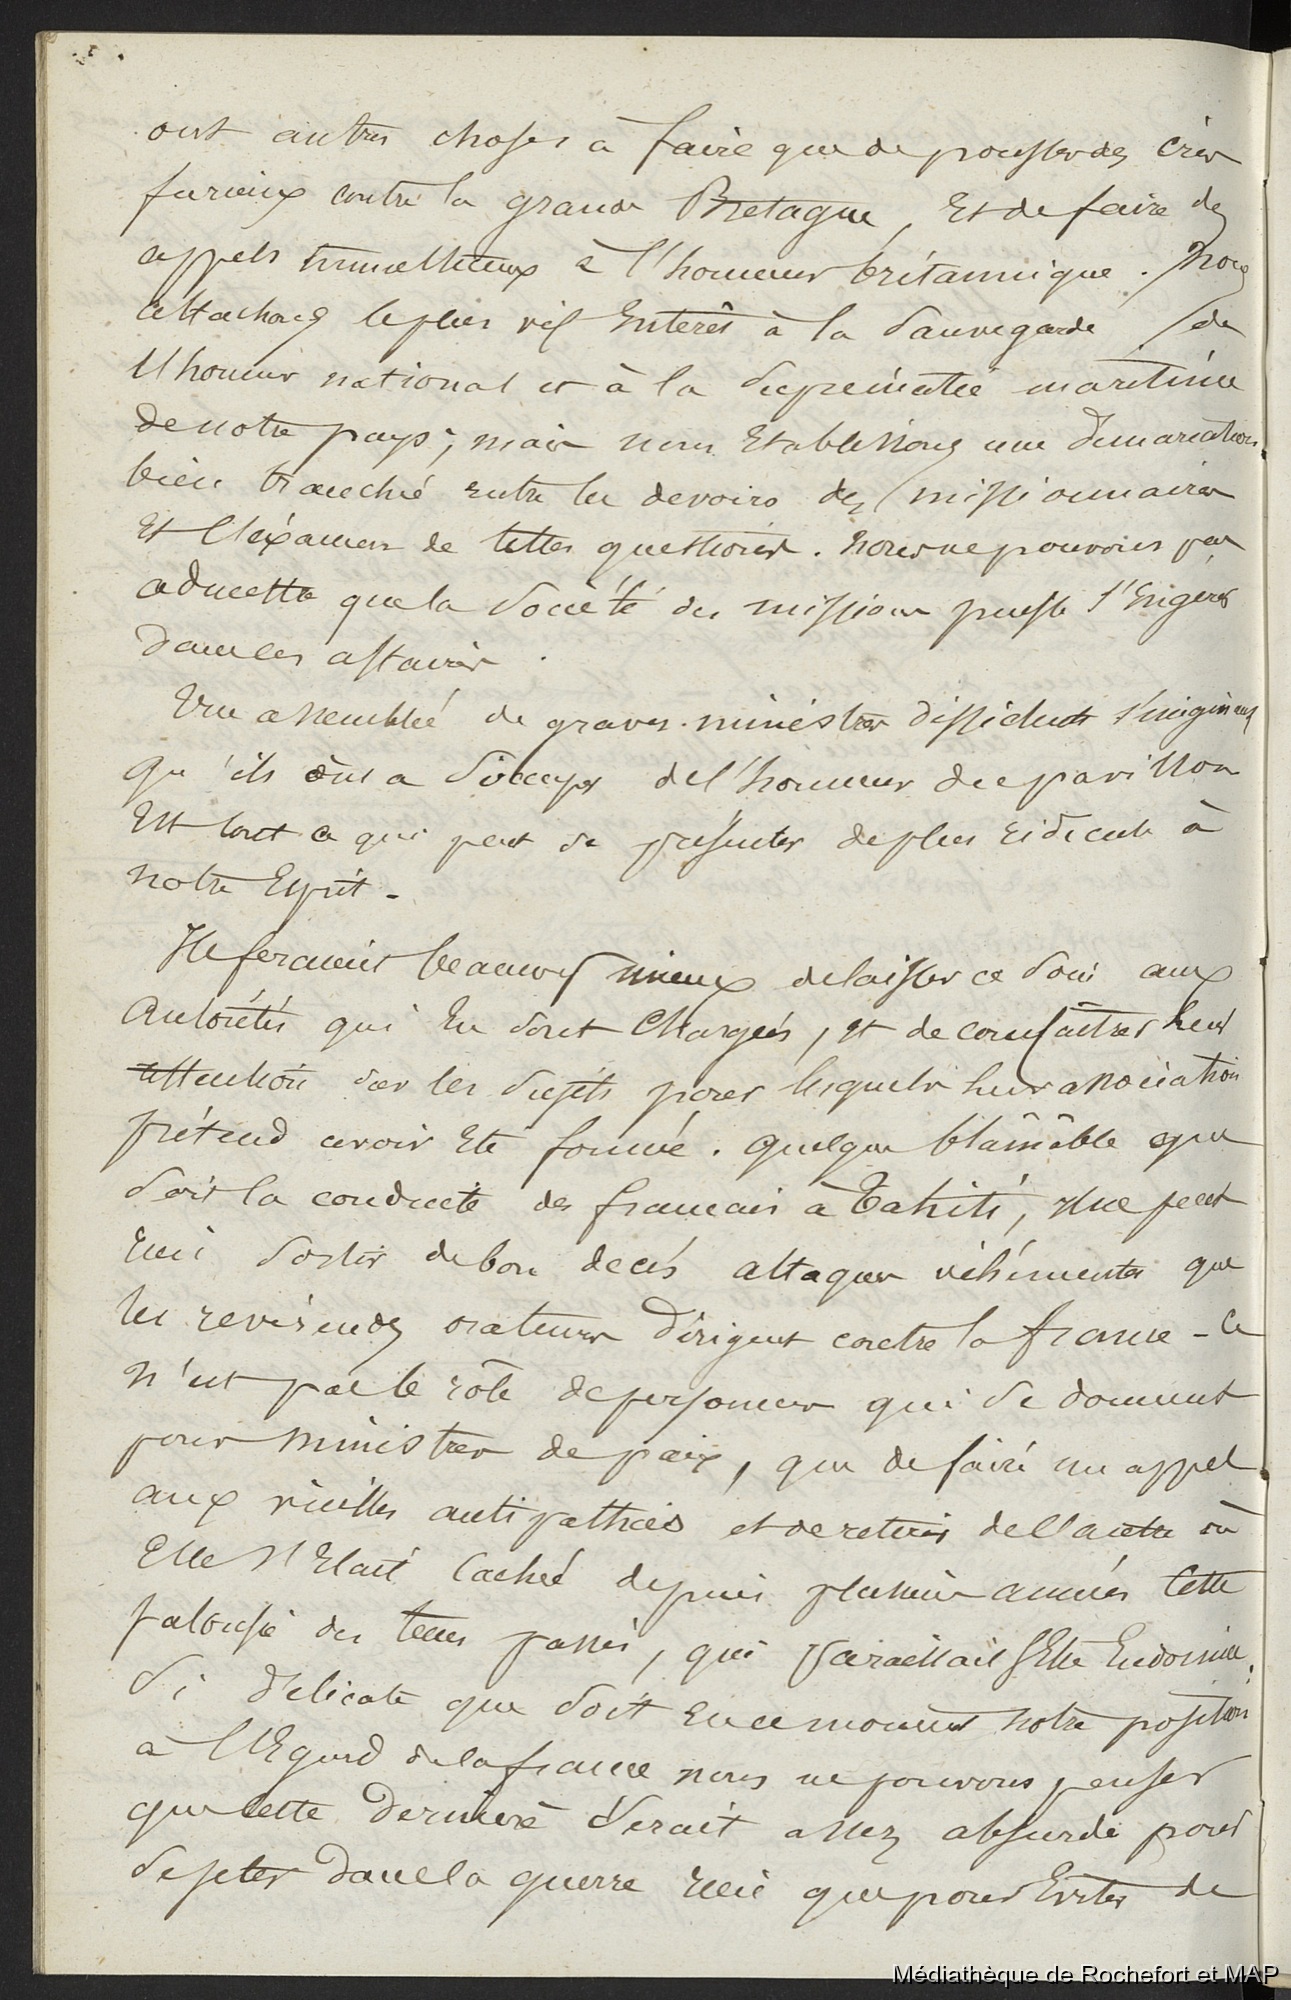 ont autres choses à faire que de pousser des cris
furieux contre la grande Bretagne, Et de faire des
appels tumultueux à l'honneur britannique. Nous
attachons le plus vif Interêt à la Sauvegarde de
l'honneur national et à la Suprématie maritime
de notre pays; mais nous Etablissons une Démarcation
bien tranché entre les devoirs des missionnaires
Et l'éxamen de telles questions. Nous ne pouvons pas
admettre que la Société des missions puisse s'Ingérer
dans les affaires.
Une assemblée de graves ministres dissidents s'imaginant
qu'ils ont a S'occuper de l'honneur du pavillon
Est tout ce qui peut se présenter de plus ridicule à
notre Esprit -
Ils feraient beaucoup mieux de laisser ce Soin aux
Autorités qui En Sont Chargées, et de leur
attention sur les Sujets pour lesquels leur association
prétend avoir Eté formée. Quelque blâmable que
Soit la conduite des français à Tahiti, il ne peut
rien Sortir de bon de ces attaques véhémentes que
les revérends orateurs Dirigent contre la france - Ce
n'est pas le rôle de personnes qui Se donnent
pour ministres de paix, que de faire un appel
aux vieilles antipathies et de retirer de l'antre où
Elle S'Etait Cachée depuis plusieurs années Cette
jalousie des tems passés, qui paraissait Etre Endormie.
Si Délicate que Soit En ce moment notre position
à l'Egard de la france nous ne pouvons penser
que Cette Dernière Serait assez absurde pour
Se jeter Dans la guerre rien que pour Eviter de
Médiathèque de Rochefort et MAP